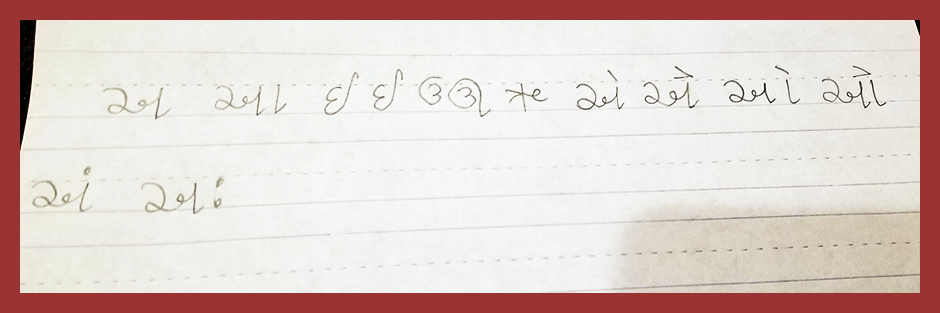 અ આ ઈ ઈ ઉ ઊ ઋ એ ઐ ઓ ઔ
અં અઃ